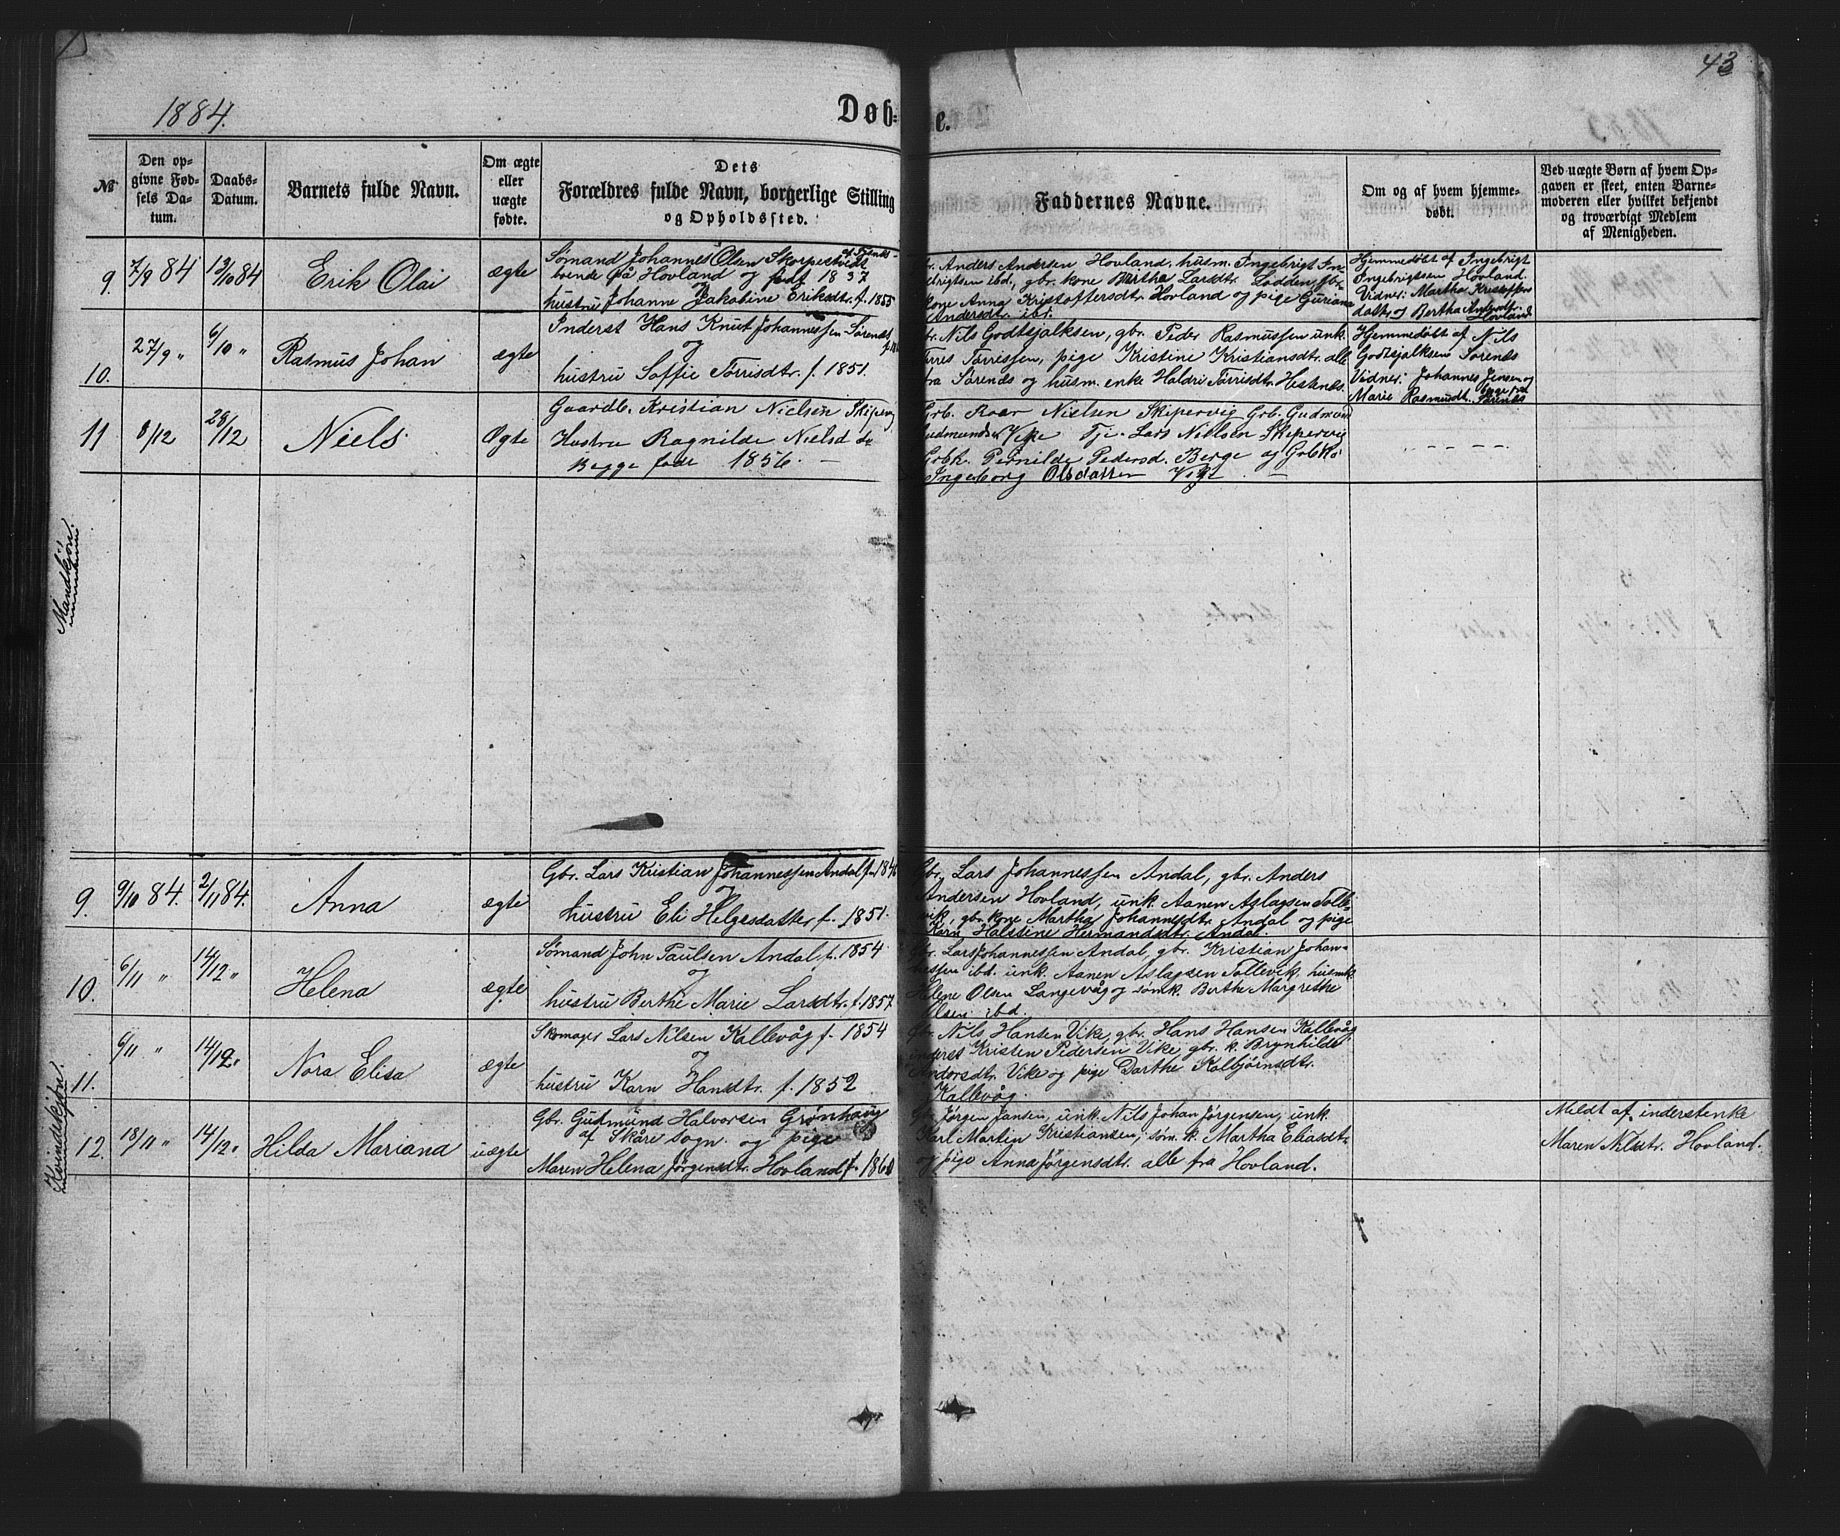 43
1884.
Døbte.
№
Den op-
givne Fød-
sels Da-
tum.
Daabs-
Datum.
Barnets fulde Navn.
Om ægte
eller
uægte
fødte.
Dets
Forældres fulde Navn, borgerlige Stilling
og Opholdssted.
Faddernes Navne.
Om og af hvem hjemme-
døbt.
Ved uægte Børn af hvem Op-
gaven er skeet, enten Barne-
moderen eller hvilket bekjendt
og troværdigt Medlem
af Menigheden.
Mandkjøn.
9.
7/9 84
13/10 84
Erik Olai
ægte
Sømand Johannes Olsen
på Hovland og født 1837
hustru Johanne Jakobine Eriksdtr. f. 1855
Anders Andersen Hovland, husm. Ingebrigt In-
gebrigtsen ibd., gbr. kone Larsdtr. Lodden, gbr.
kone Anna Kristoffersdtr. Hovland og pige Guriane
Andersdt. ibd.
Hjemmedøbt af Ingebrigt
Ingebrigtsen Hovland.
Vidner: Martha Kristoffers
datter og Bertha
Hovland
10.
27/9 "
6/10 "
Rasmus Johan
ægte
Inderst Hans Knut Johannessen Sørenæs
og
hustru Soffie Tørrisdtr. f. 1851.
Nils Godtsjalksen, gbr. Peder Rasmussen unk.
Tørres Tørrissen, pige Kristine Kristiansdtr. alle
fra Sørenæs og husm. enke Haldri Tørrisdtr. Hestenæs.
Hjemmedøbt af Nils
Godtsjalksen Sørenæs
Vidner: Johannes Jensen og
Marie Rasmusdt. begge fra
Sørenæs
11
8/12
28/12
Niels
Ægte
Gaardb. Kristian Nielsen Skipervig
Hustru Ragnilde Nielsd
Begge føde 1856. —
Grb. Roar Nielsen Skipervig Grb. Gudmun
Gudmundsen Vike Tje. Lars Nielsen Skipervig
Grbk. Pernilde Pedersd. Berge og Grbko
Ingeborg Olsdatter Vige —
- - - -
Kvindekjøn.
9.
9/10 84.
2/11 84.
Anna
ægte
Gbr. Lars Kristian Johannessen Andal f. 184
og
hustru Eli Helgesdatter f. 1851.
Gbr. Lars Johannessen Andal, gbr. Anders
Andersen Hovland, unk. Aanen Aslagsen Tolle-
vik, gbr. kone Martha Johannesdtr. Andal og pige
Karn Halstine Hermandsdtr. Andal.
10.
6/11 "
14/12 "
Helena
ægte
Sømand John Paulsen Andal f. 1854
og
hustru Berthe Marie Larsdtr. f. 1857
Gbr. Lars Johannessen Andal, gbr. Kristian Johan-
nessen ibd. unk. Aanen Aslagsen Tollevik, husmk.
Helene Olsen Langevåg og sømk. Berthe Margrethe
Olsen ibd.
11.
6/11 "
14/12 "
Nora Elisa
ægte
Skomager Lars Nilsen Kallevåg f. 1854
og
hustru Karn Hansdtr. f. 1852
Gbr. Nils Hansen Vike, gbr. Hans Hansen Kallevåg,
inderst Kristen Pedersen Vike, gbr. k. Brynhilde
Andorsdtr. Vike og pige Dorthe Kolbjørnsdtr.
Kallevåg.
12.
18/11 "
14/12 "
Hilda Mariana
uægte
Gbr. Gudmund Halvorsen Grønhaug
af Skåre sogn og pige
Maren Helena Jørgensdtr. Hovland f. 1860
Gbr. Jørgen Jansen, unk. Nils Johan Jørgensen, unk.
Karl Martin Kristiansen, søm. k. Martha Eliasdt.
og pige Anna Jørgensdtr. alle fra Hovland.
Meldt af inderstenke
Maren Nilsdtr. Hovland.